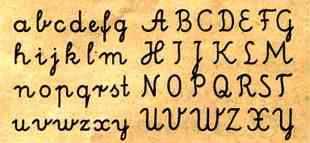 a b c d e f g A B C D E F G
h i j k l m H I J K L M
n o p q r s t N O P Q R S T
u v v w z x y U V W Z X Y